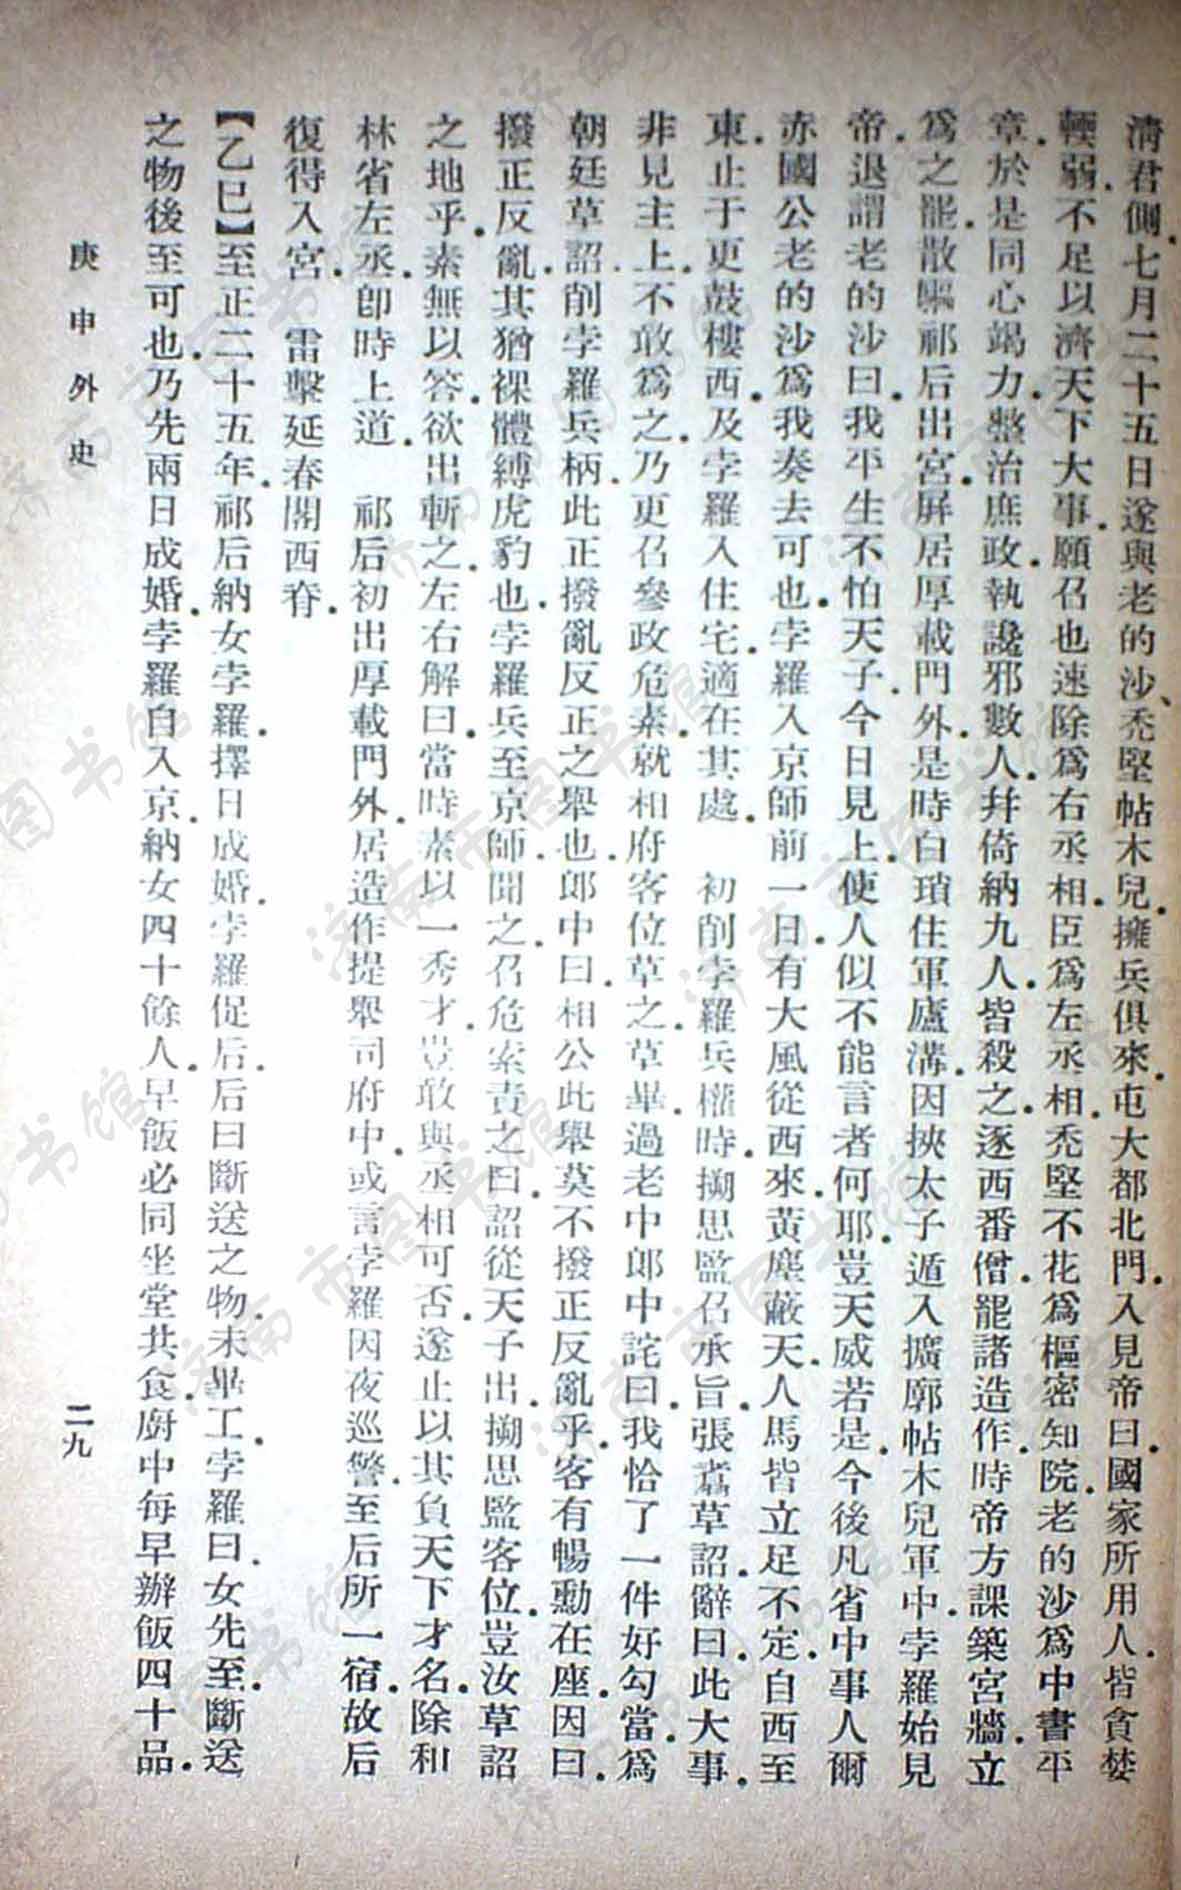 清君側七月二十五日遂與老的沙、禿堅帖木兒擁兵俱來屯大都北門入見帝曰國家所用人皆貪婪
輭弱不足以濟天下大事願召也速除爲右丞相臣爲左丞相禿堅不花爲樞密知院老的沙爲中書平
章於是同心竭力整治庶政執讒邪數人幷倚納九人皆殺之逐西番僧罷諸造作時帝方課築宮牆立
爲之罷散驅祁后出宮屏居厚載門外是時白瑣住軍廬溝因挾太子遁入擴廓帖木兒軍中孛羅始見
帝退謂老的沙曰我平生不怕天子今日見上使人似不能言者何耶豈天威若是今後凡省中事人爾
赤國公老的沙爲我奏去可也孛羅入京師前一日有大風從西來黃塵蔽天人馬皆立足不定自西至
東止于更鼓樓西及孛羅入住宅適在其處　初削孛羅兵權時搠思監召承旨張翥草詔辭曰此大事
非見主上不敢爲之乃更召參政危素就相府客位草之草畢過老中郎中詫曰我恰了一件好勾當爲
朝廷草詔削孛羅兵柄此正撥亂反正之舉也郎中曰相公此舉莫不撥正反亂乎客有暢勳在座因曰
撥正反亂其猶裸體縛虎豹也孛羅兵至京師聞之召危素責之曰詔從天子出搠思監客位豈汝草詔
之地乎素無以答欲出斬之左右解曰當時素以一秀才豈敢與丞相可否遂止以其負天下才名除和
林省左丞卽時上道　祁后初出厚載門外居造作提舉司府中或言孛羅因夜巡警至后所一宿故后
復得入宮　雷擊延春閣西脊
【乙巳】至正二十五年祁后納女孛羅擇日成婚孛羅促后后曰斷送之物未畢工孛羅曰女先至斷送
之物後至可也乃先兩日成婚孛羅自入京納女四十餘人早飯必同坐堂共食廚中每早辦飯四十品
庚申外史
二九